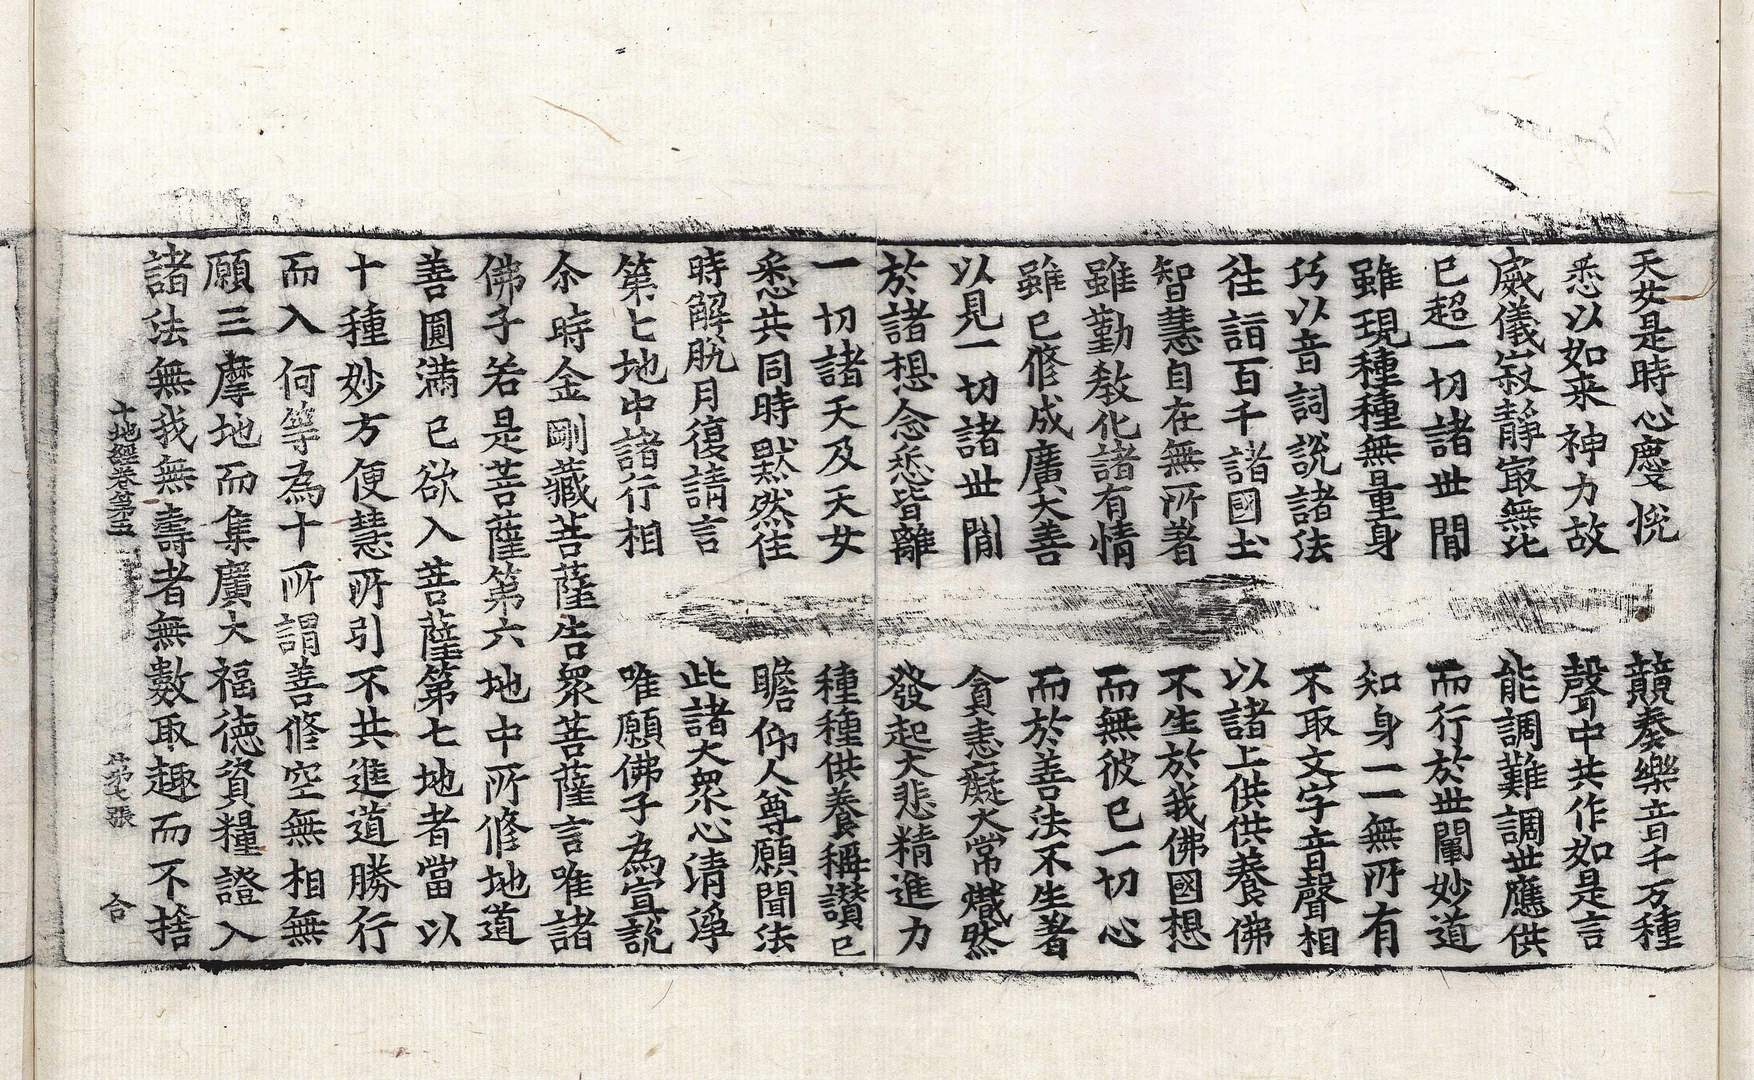 天女是時心慶悅　競奏樂音千万種
悉以如来神力故　聲中共作如是言
威儀寂靜寂無比　能調難調世應供
已超一切諸世間　而行於世闡妙道
雖現種種無量身　知身一一無所有
巧以音詞說諸法　不取文字音聲相
往詣百千諸國土　以諸上供供養佛
智慧自在無所著　不生於我佛國想
雖勤教化諸有情　而無彼已一切心
雖已修成廣大善　而於善法不生著
以見一切諸世間　貪恚癡火常熾然
於諸想念悉皆離　發起大悲精進力
一切諸天及天女　種種供養稱讃已
悉共同時默然住　瞻仰人尊願聞法
時解脫月復請言　此諸大衆心清淨
第七地中諸行相　唯願佛子為宣說
尒時金剛藏菩薩告衆菩薩言唯諸
佛子若是菩薩第六地中所修地道
善圓滿已欲入菩薩第七地者當以
十種妙方便慧所引不共進道勝行
而入何等為十所謂善修空無相無
願三摩地而集廣大福徳資糧證入
諸法無我無壽者無數取趣而不捨
十地經卷第五　第七張　合